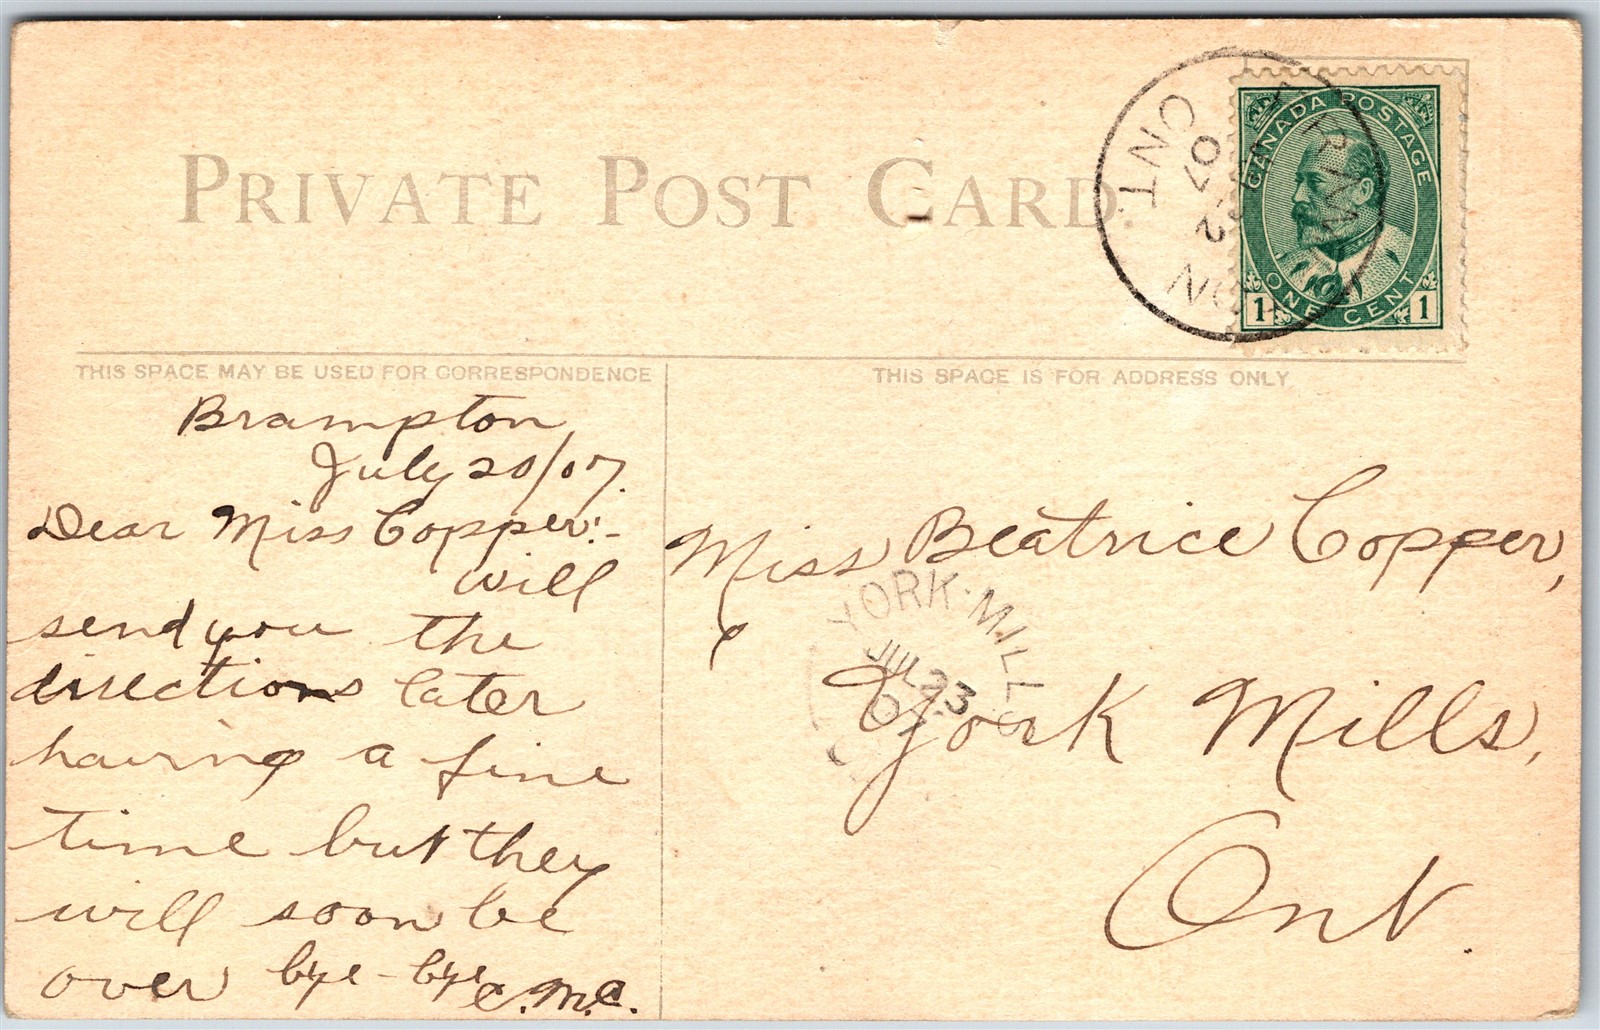 PRIVATE POST CARD.
CANADA POSTAGE
ONE CENT
1 1
ONT.
07
THIS SPACE MAY BE USED FOR CORRESPONDENCE
THIS SPACE IS FOR ADDRESS ONLY
Brampton
July 20/07.
Dear Miss Copper:-
will
send you the
directions later
having a fine
time but they
will soon be
over bye-bye
C.M.C.
Miss Beatrice Copper,
York Mills,
Ont.
YORK-MILLS
JUL 23
07